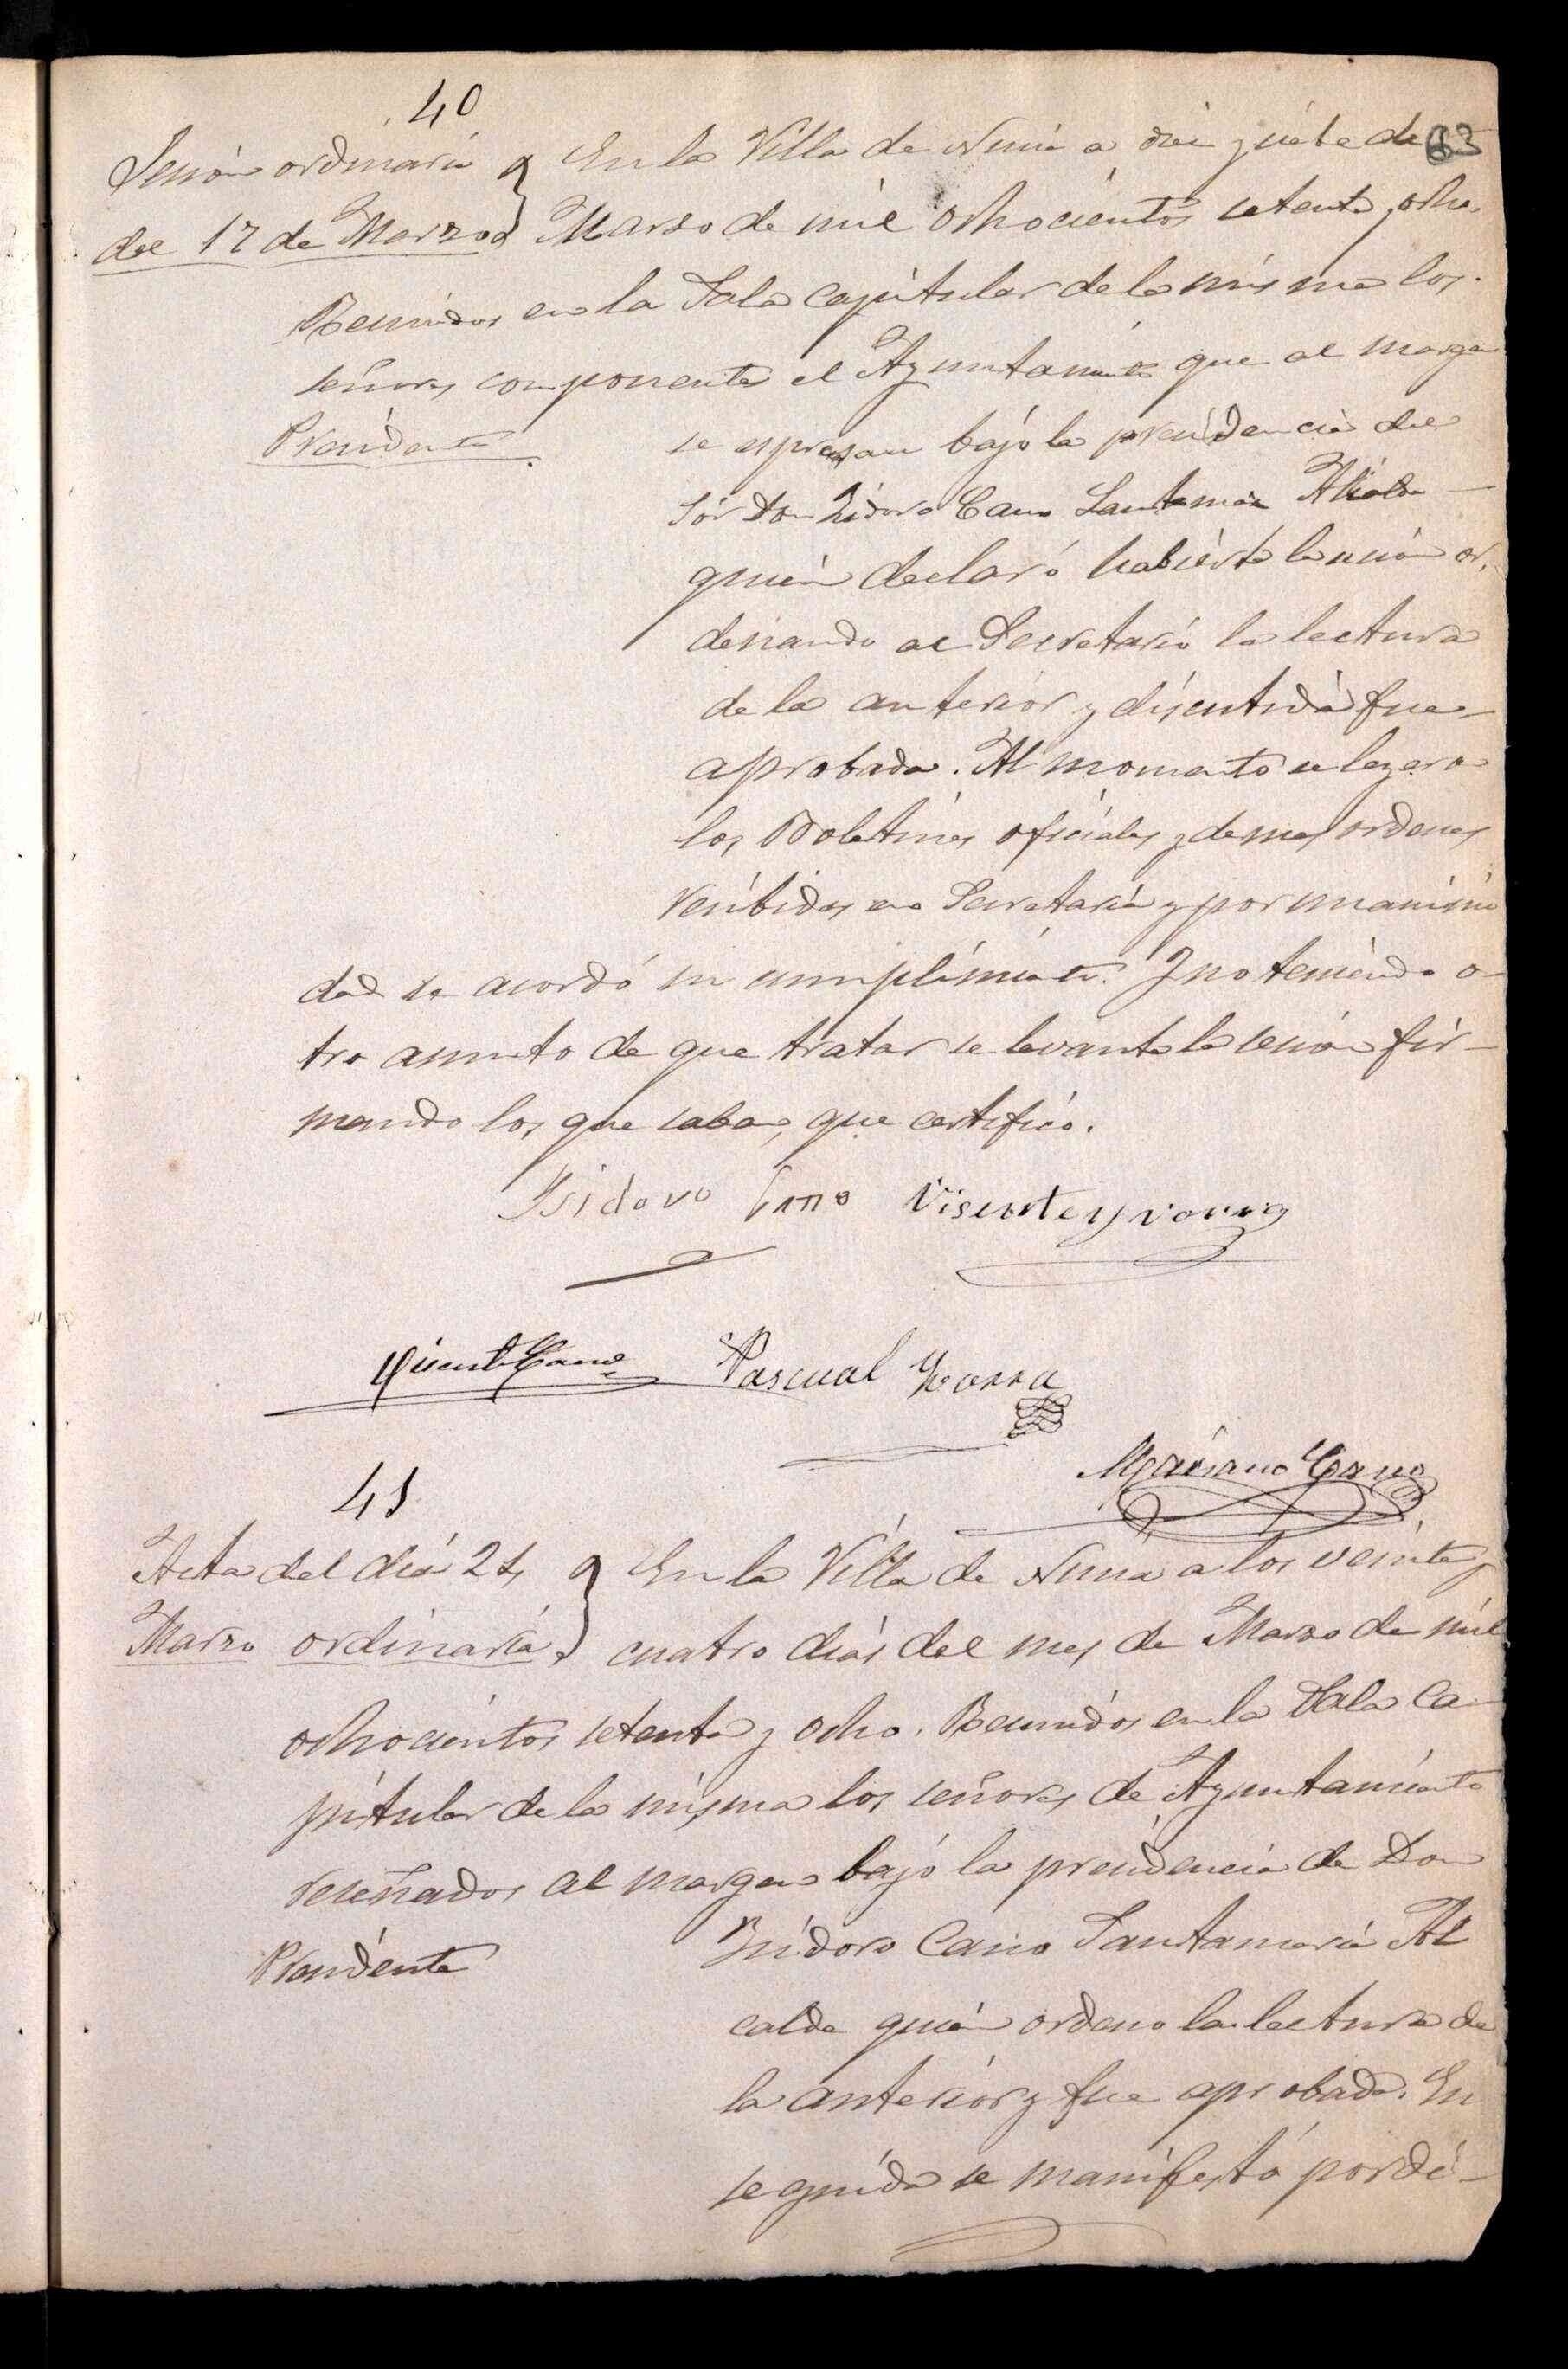 40
63
Sesión ordinaria
del 17 de Marzo
En la Villa de Nucia a diez y siete de
Marzo de mil ochocientos setenta y ocho.
Reunidos en la Sala capitular de la misma los
señores componentes el Ayuntamto que al margen
Presidente
se espresan bajo la presidencia del
Sor Don Isidoro Cano Santamaria Alcalde
quien declaró habierta la sesión or-
denando al Secretario la lectura
de la anterior y discutida fue
aprobada. Al momento se leyeron
los Boletines oficiales y demas ordenes
recibidas en Secretaria y por unanimi
dad se acordó su cumplimiento. Y no teniendo o-
tro asunto de que tratar se levanto la sesión fir-
mando los que saben, que certifico.
Ysidoro Cano Visente Yvorra
Vicente Cano Pascual Lloret
Mariano Cano
41
Acta del dia 24
Marzo ordinaria
En la Villa de Nucia a los veinte y
cuatro dias del mes de Marzo de mil
ochocientos setenta y ocho. Reunidos en la Sala Ca-
pitular de la misma los señores de Ayuntamiento
reseñados al margen bajo la presidencia de Don
Presidente
Isidoro Cano Santamaria Al
calde quien ordeno la lectura de
la anterior y fue aprobada. En
seguida se manifestó por di-